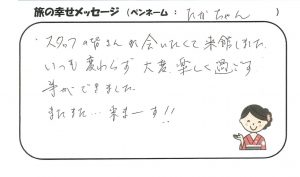 旅の幸せメッセージ (ペンネーム : たかちゃん )
・スタッフの皆さんに会いたくて来館しました。
いつも変わらず大変楽しく過ごす
事ができました。
またまた…来まーす!!